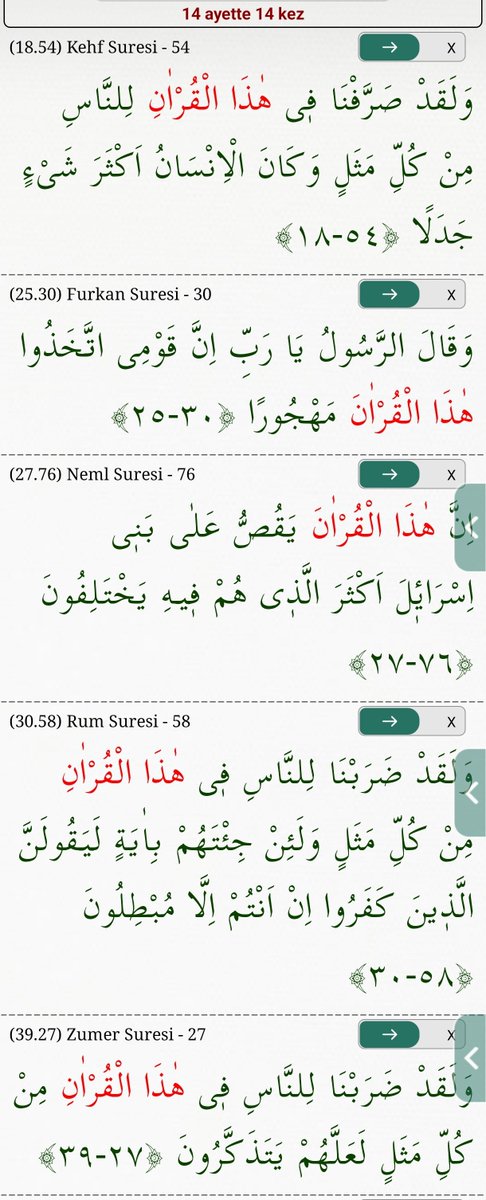 14 ayette 14 kez
(18.54) Kehf Suresi - 54 → X
وَلَقَدْ صَرَّفْنَا فٖى هٰذَا الْقُرْاٰنِ لِلنَّاسِ
مِنْ كُلِّ مَثَلٍ وَكَانَ الْاِنْسَانُ اَكْثَرَ شَیْءٍ
جَدَلًا ﴿٥٤-١٨﴾
(25.30) Furkan Suresi - 30 → X
وَقَالَ الرَّسُولُ يَا رَبِّ اِنَّ قَوْمِى اتَّخَذُوا
هٰذَا الْقُرْاٰنَ مَهْجُورًا ﴿٣٠-٢٥﴾
(27.76) Neml Suresi - 76 → X
اِنَّ هٰذَا الْقُرْاٰنَ يَقُصُّ عَلٰى بَنٖى
اِسْرَائٖلَ اَكْثَرَ الَّذٖى هُمْ فٖيهِ يَخْتَلِفُونَ
﴿٧٦-٢٧﴾
(30.58) Rum Suresi - 58 → X
وَلَقَدْ ضَرَبْنَا لِلنَّاسِ فٖى هٰذَا الْقُرْاٰنِ
مِنْ كُلِّ مَثَلٍ وَلَئِنْ جِئْتَهُمْ بِاٰيَةٍ لَيَقُولَنَّ
الَّذٖينَ كَفَرُوا اِنْ اَنْتُمْ اِلَّا مُبْطِلُونَ
﴿٥٨-٣٠﴾
(39.27) Zumer Suresi - 27 → X
وَلَقَدْ ضَرَبْنَا لِلنَّاسِ فٖى هٰذَا الْقُرْاٰنِ مِنْ
كُلِّ مَثَلٍ لَعَلَّهُمْ يَتَذَكَّرُونَ ﴿٢٧-٣٩﴾